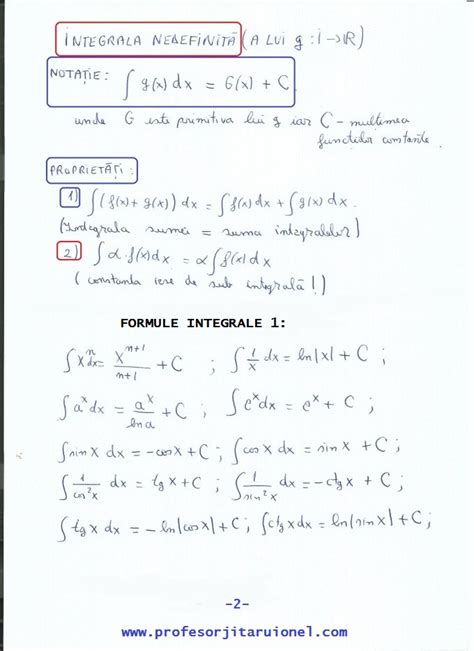 INTEGRALA NEDEFINITĂ (A LUI g : I → ℝ)
NOTAȚIE: ∫ g(x) dx = G(x) + C
unde G este primitiva lui g iar C - mulțimea
funcțiilor constante.
PROPRIETĂȚI:
1) ∫(f(x) + g(x)) dx = ∫f(x) dx + ∫g(x) dx.
(Integrala sumă = suma integralelor)
2) ∫ α·f(x) dx = α ∫ f(x) dx
(constanta iese de sub integrală!)
FORMULE INTEGRALE 1:
∫ xⁿ dx = xⁿ⁺¹/(n+1) + C ; ∫ 1/x dx = ln|x| + C ;
∫ aˣ dx = aˣ/ln a + C ; ∫ eˣ dx = eˣ + C ;
∫ sin x dx = -cos x + C ; ∫ cos x dx = sin x + C ;
∫ 1/cos²x dx = tg x + C ; ∫ 1/sin²x dx = -ctg x + C ;
∫ tg x dx = -ln|cos x| + C ; ∫ ctg x dx = ln|sin x| + C ;
-2-
www.profesorjitaruionel.com